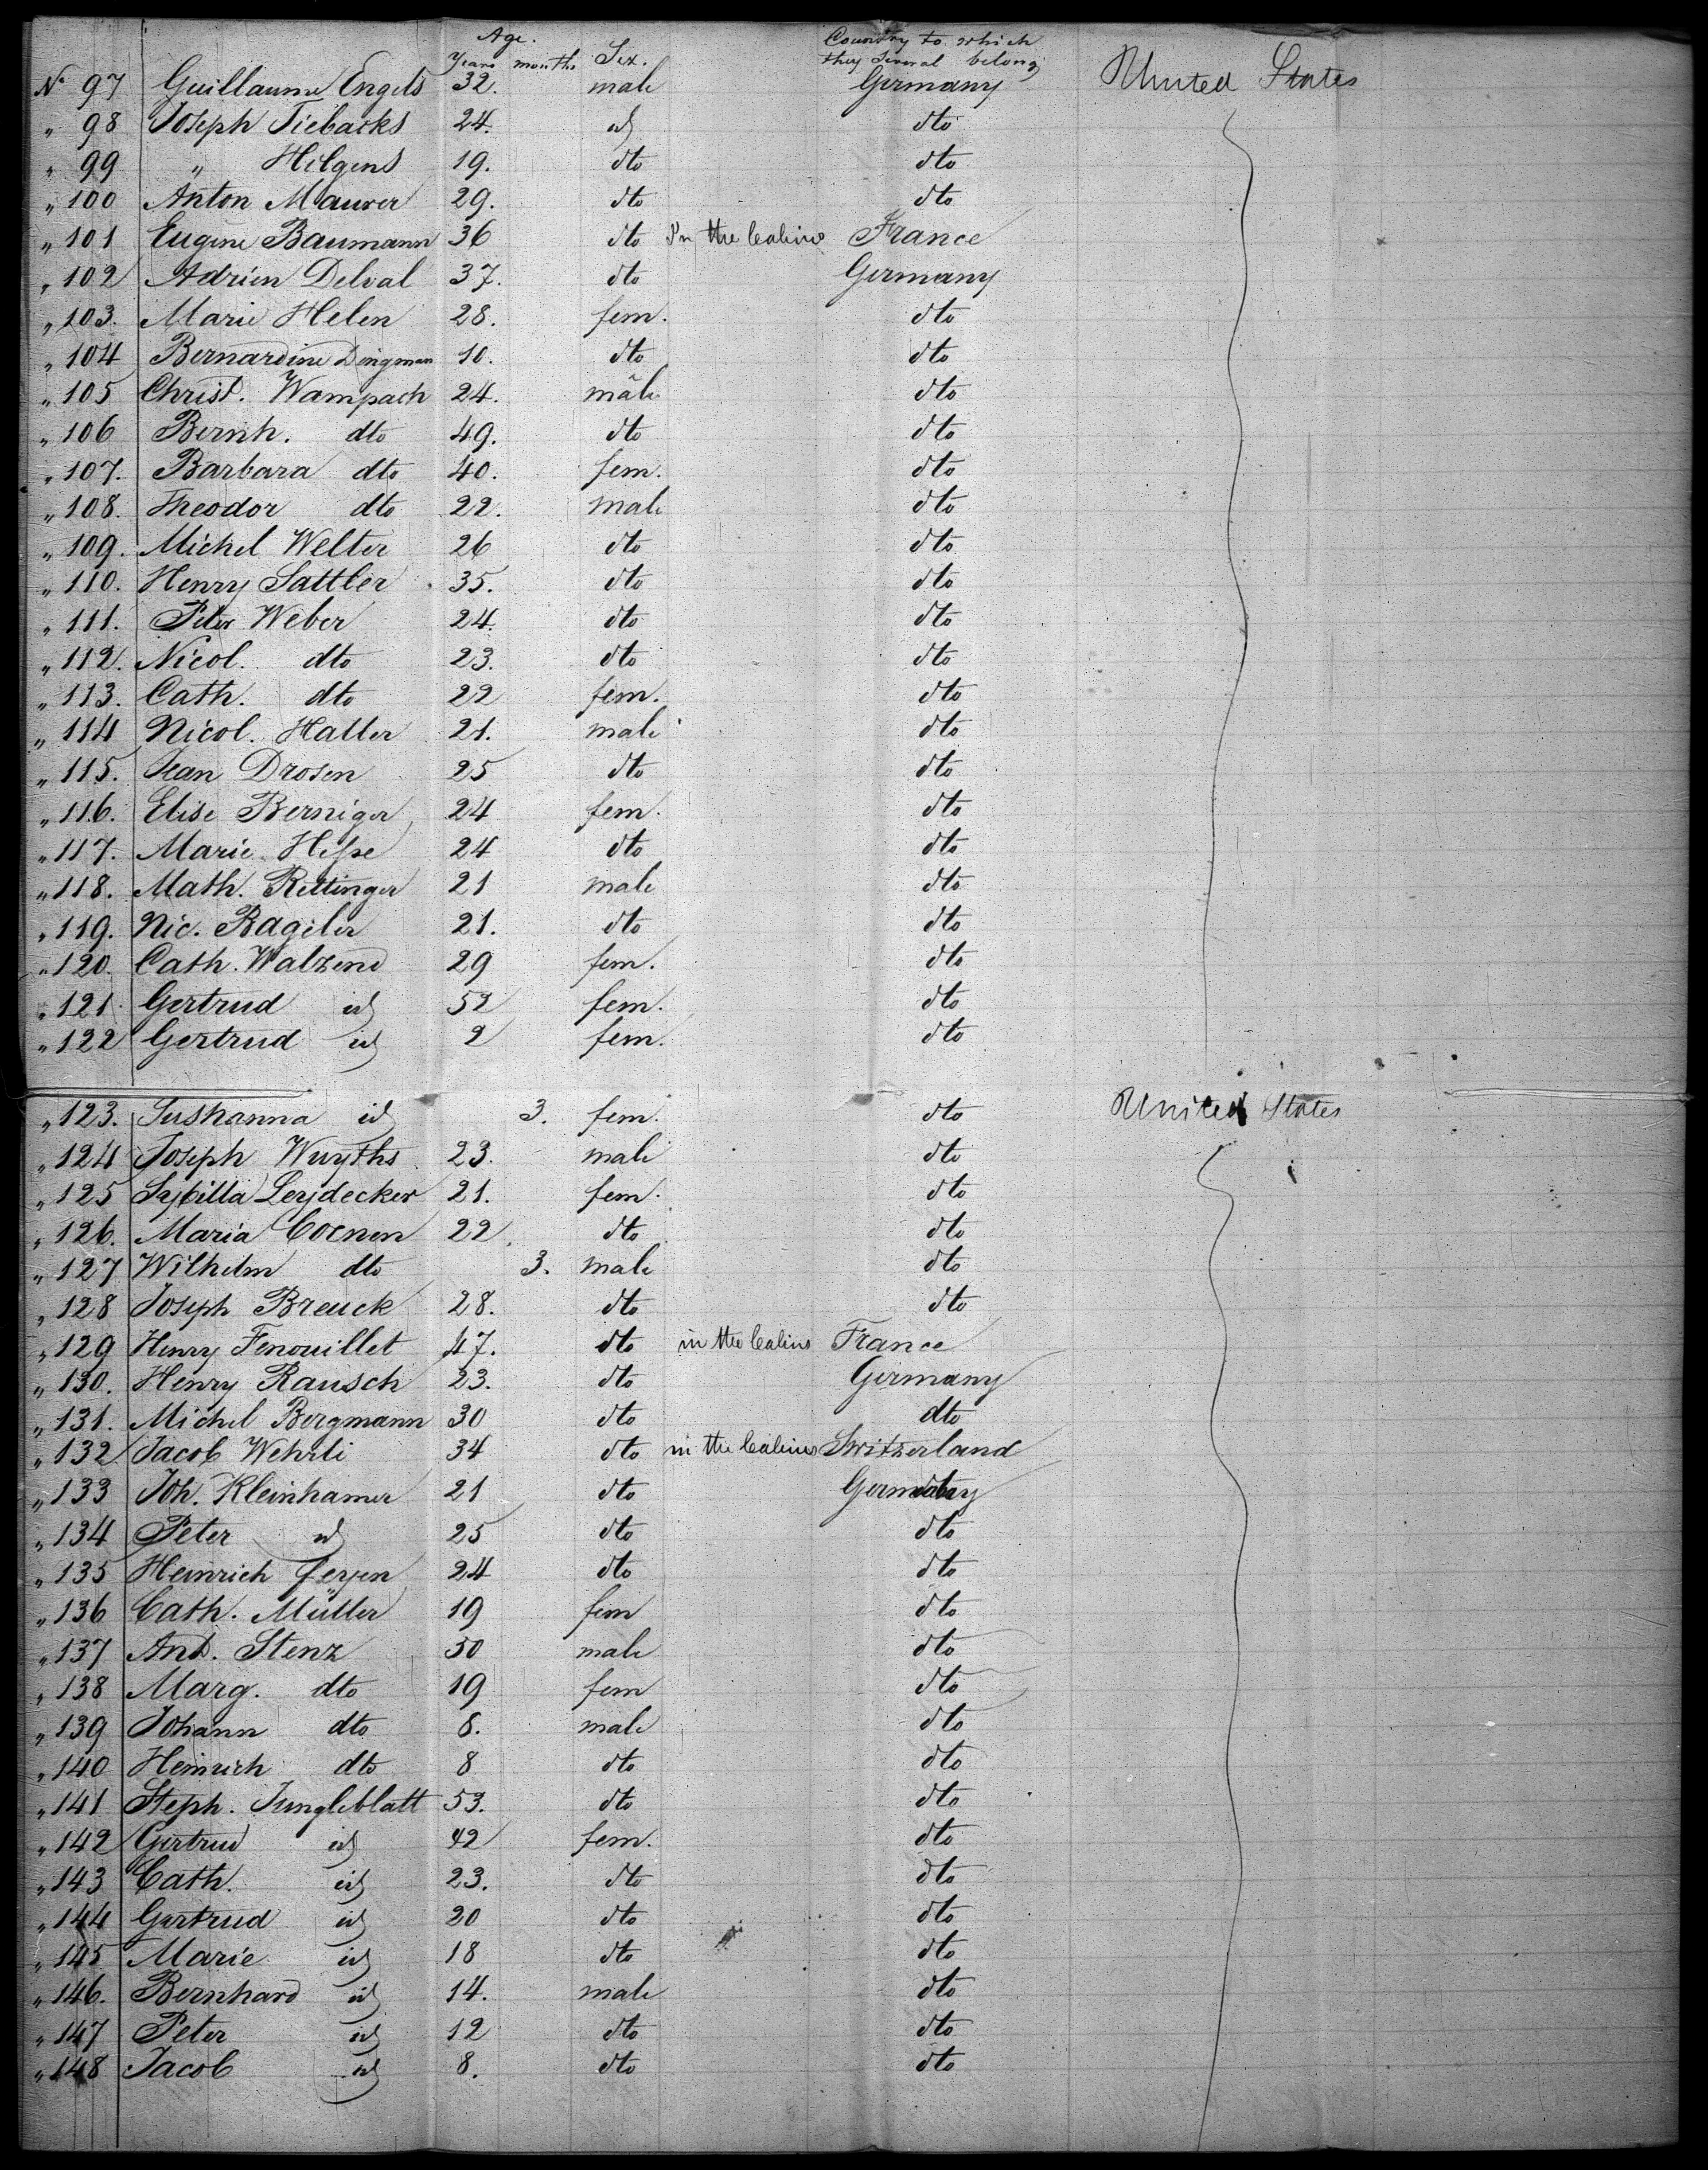 Age.
Years months Sex. Country to which
they several belong
No 97 Guillaume Engels 32. male Germany United States
„ 98 Joseph Tiebacks 24. id dto
„ 99 „ Hilgens 19. dto dto
„ 100 Anton Maurer 29. dto dto
„ 101 Eugene Baumann 36 dto In the Cabine France
„ 102 Adrien Delval 37. dto Germany
„ 103. Marie Helen 28. fem. dto
„ 104 Bernardine Dingman 10. dto dto
„ 105 Christ. Wampach 24. male dto
„ 106 Bernh. dto 49. dto dto
„ 107. Barbara dto 40. fem. dto
„ 108. Theodor dto 22. male dto
„ 109. Michel Welter 26 dto dto
„ 110. Henry Sattler 35. dto dto
„ 111. Peter Weber 24. dto dto
„ 112. Nicol. dto 23. dto dto
„ 113. Cath. dto 22 fem. dto
„ 114 Nicol. Haller 21. male dto
„ 115. Jean Drosen 25 dto dto
„ 116. Elise Berniger 24 fem. dto
„ 117. Marie Hesse 24 dto dto
„ 118. Math. Rettinger 21 male dto
„ 119. Nic. Bageler 21. dto dto
„ 120. Cath. Walzend 29 fem. dto
„ 121. Gertrud id 52 fem. dto
„ 122 Gertrud id 2 fem. dto
„ 123. Sushanna id 3. fem. dto United States
„ 124 Joseph Wuyths 23. male dto
„ 125 Sybilla Leydecker 21. fem. dto
„ 126. Maria Coenen 22. dto dto
„ 127 Wilhelm dto 3. male dto
„ 128 Joseph Breuck 28. dto dto
„ 129 Henry Fenouillet 47. dto in the Cabine France
„ 130. Henry Rausch 23. dto Germany
„ 131. Michel Bergmann 30 dto dto
„ 132 Jacob Wehrli 34 dto in the Cabine Switzerland
„ 133 Joh. Kleinhamer 21 dto Germany
„ 134 Peter id 25 dto dto
„ 135 Heinrich 24 dto dto
„ 136 Cath. Müller 19 fem dto
„ 137 And. Stenz 50 male dto
„ 138 Marg. dto 19 fem dto
„ 139 Johann dto 8. male dto
„ 140 Heinrich dto 8 dto dto
„ 141 Steph. Jungleblatt 53. dto dto
„ 142 Gertrud id 42 fem. dto
„ 143 Cath. id 23. dto dto
„ 144 Gertrud id 20 dto dto
„ 145 Marie id 18 dto dto
„ 146. Bernhard id 14. male dto
„ 147 Peter id 12 dto dto
„ 148 Jacob id 8. dto dto